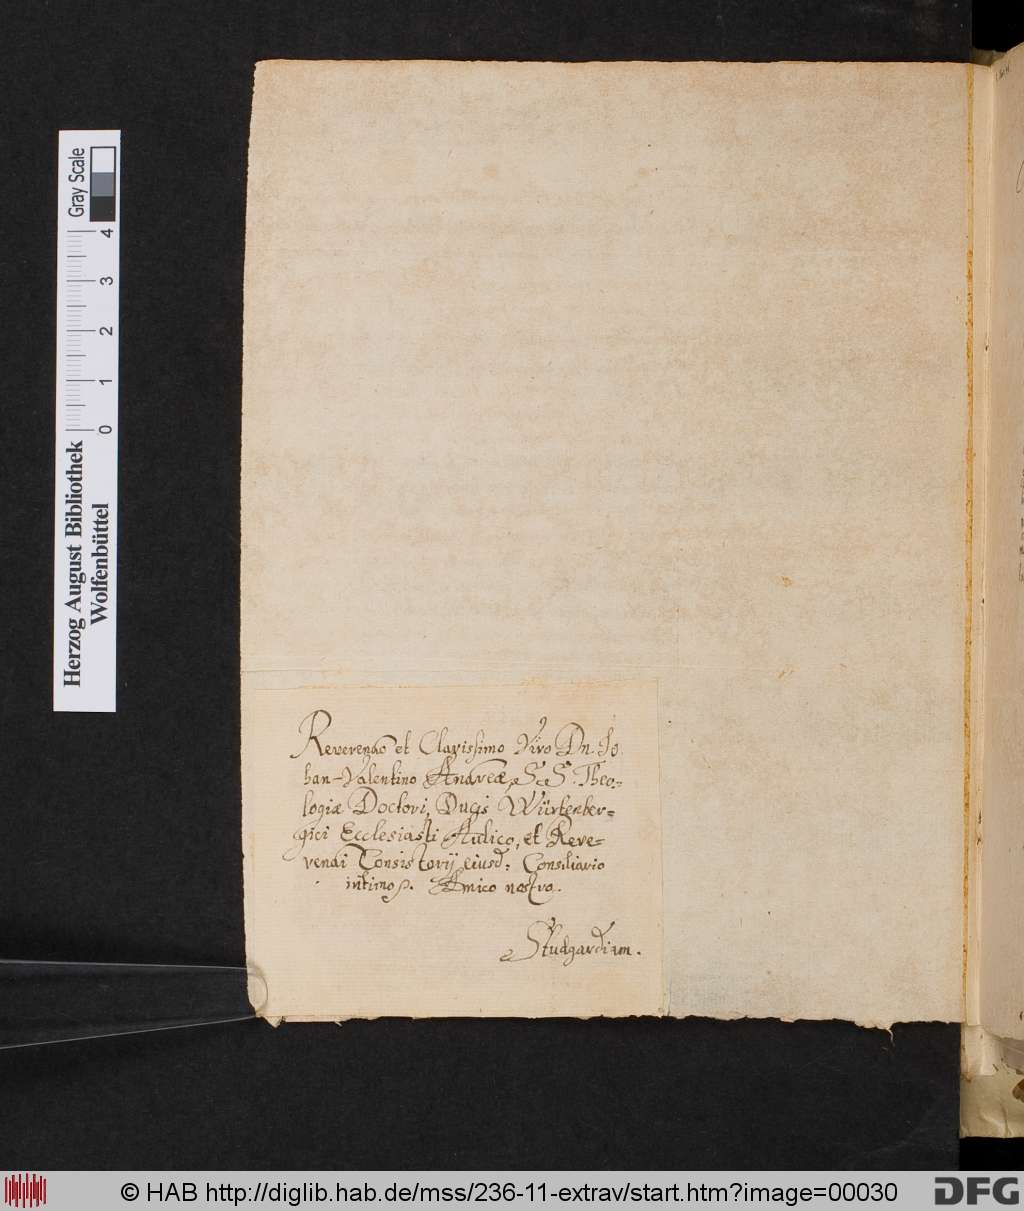 Gray Scale
0 1 2 3 4
Herzog August Bibliothek
Wolfenbüttel
Reverendo et Clarissimo Viro Dn. Jo-
han-Valentino Andreæ, S S. Theo-
logiæ Doctori, Ducis Würtenber-
gici Ecclesiasti Aulico, et Reve-
rendi Consistorij eiusd: Consiliario
intimo. Amico nostro.
Studgardiam.
© HAB http://diglib.hab.de/mss/236-11-extrav/start.htm?image=00030
DFG